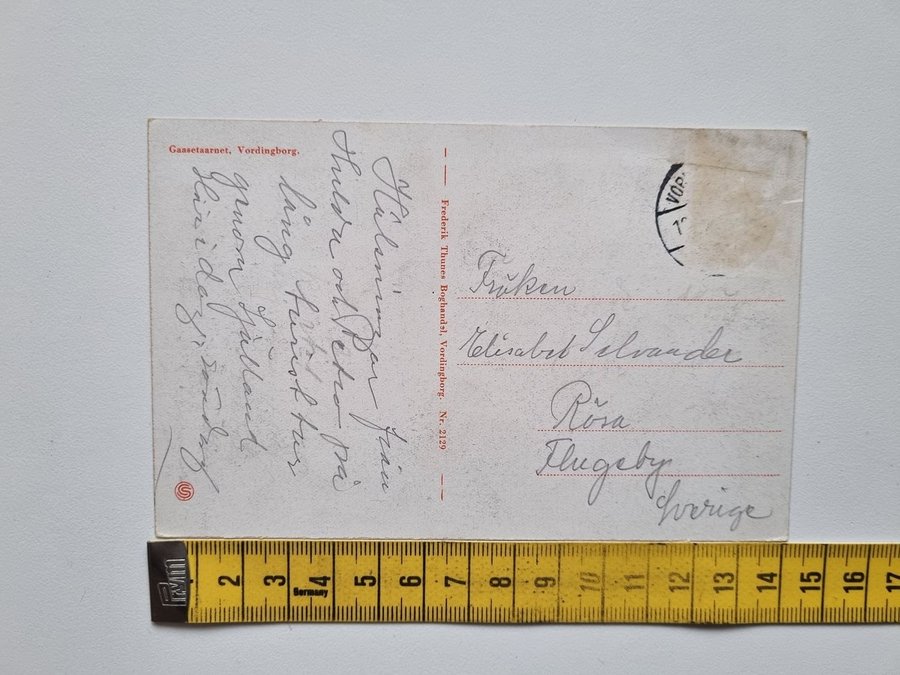 Gaasetaarnet, Vordingborg.
Hälsningar från
Hulda och Petra på
lång turisttur
genom Sjælland
i dag, söndag
Frederik Thunes Boghandel, Vordingborg. Nr. 2129
VOR
Fröken
Elisabet Selvander
Rösa
Flugeby
Sverige
PWM
2 3 4 5 6 7 8 9 10 11 12 13 14 15 16 17
Germany